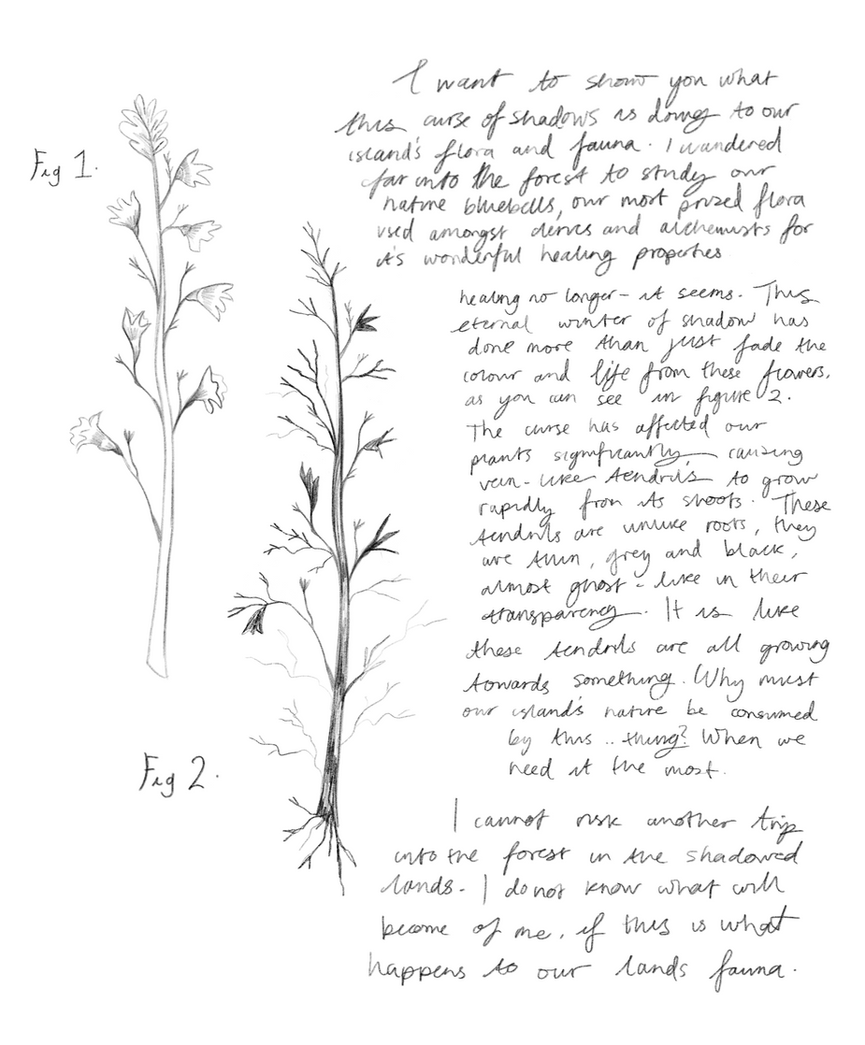 Fig 1.
I want to show you what
this curse of shadows is doing to our
island's flora and fauna. I wandered
far into the forest to study our
native bluebells, our most prized flora
used amongst clerics and alchemists for
it's wonderful healing properties
healing no longer - it seems. This
eternal winter of shadow has
done more than just fade the
colour and life from these flowers,
as you can see in figure 2.
The curse has affected our
plants significantly, causing
vein-like tendrils to grow
rapidly from its shoots. These
tendrils are unlike roots, they
are thin, grey and black,
almost ghost-like in their
transparency. It is like
these tendrils are all growing
towards something. Why must
our island's nature be consumed
by this .. thing? When we
need it the most.
Fig 2.
I cannot risk another trip
into the forest in the shadowed
lands. I do not know what will
become of me, if this is what
happens to our lands fauna.